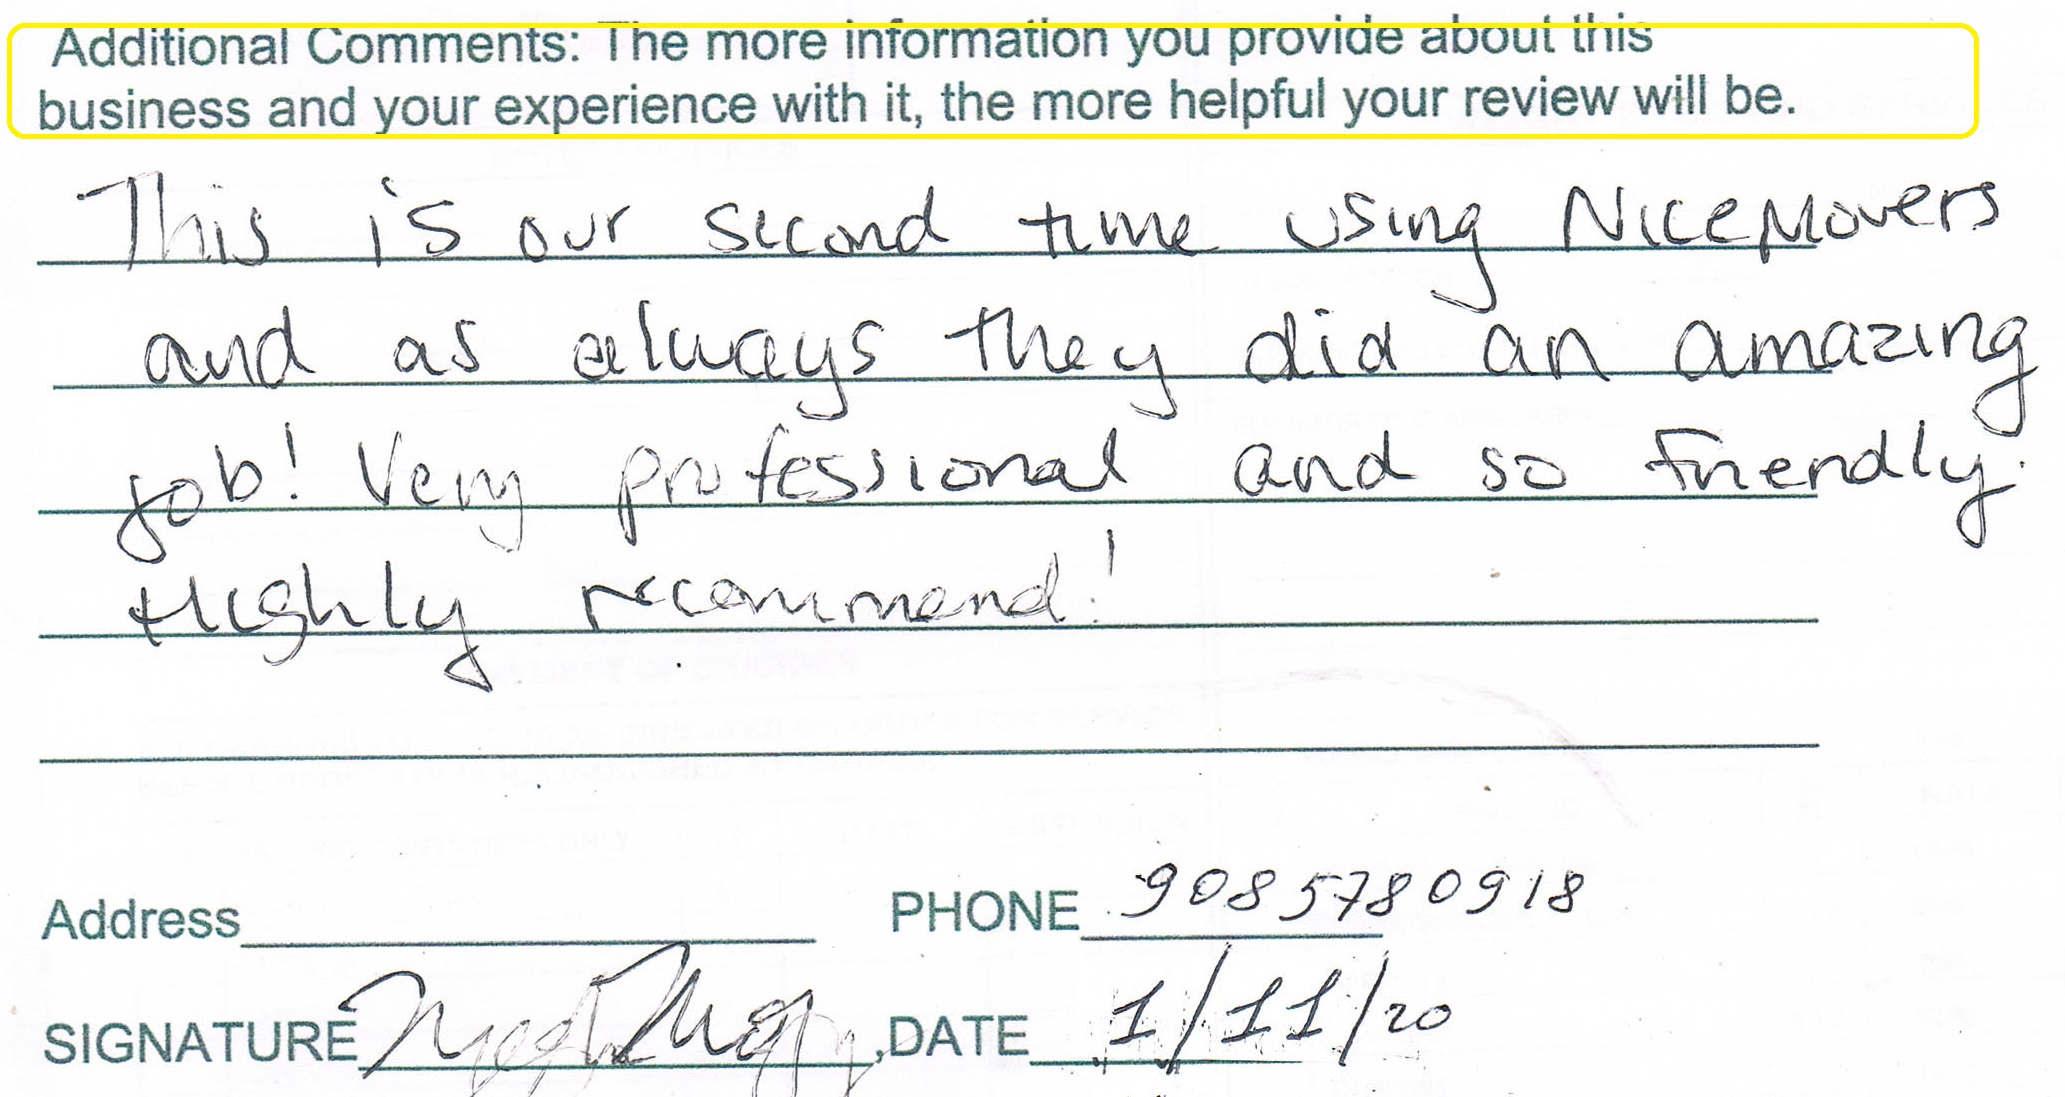 Additional Comments: The more information you provide about this
business and your experience with it, the more helpful your review will be.
This is our second time using NiceMovers
and as always they did an amazing
job! Very professional and so friendly.
Highly recommend!
Address PHONE 9085780918
SIGNATURE ,DATE 1/11/20